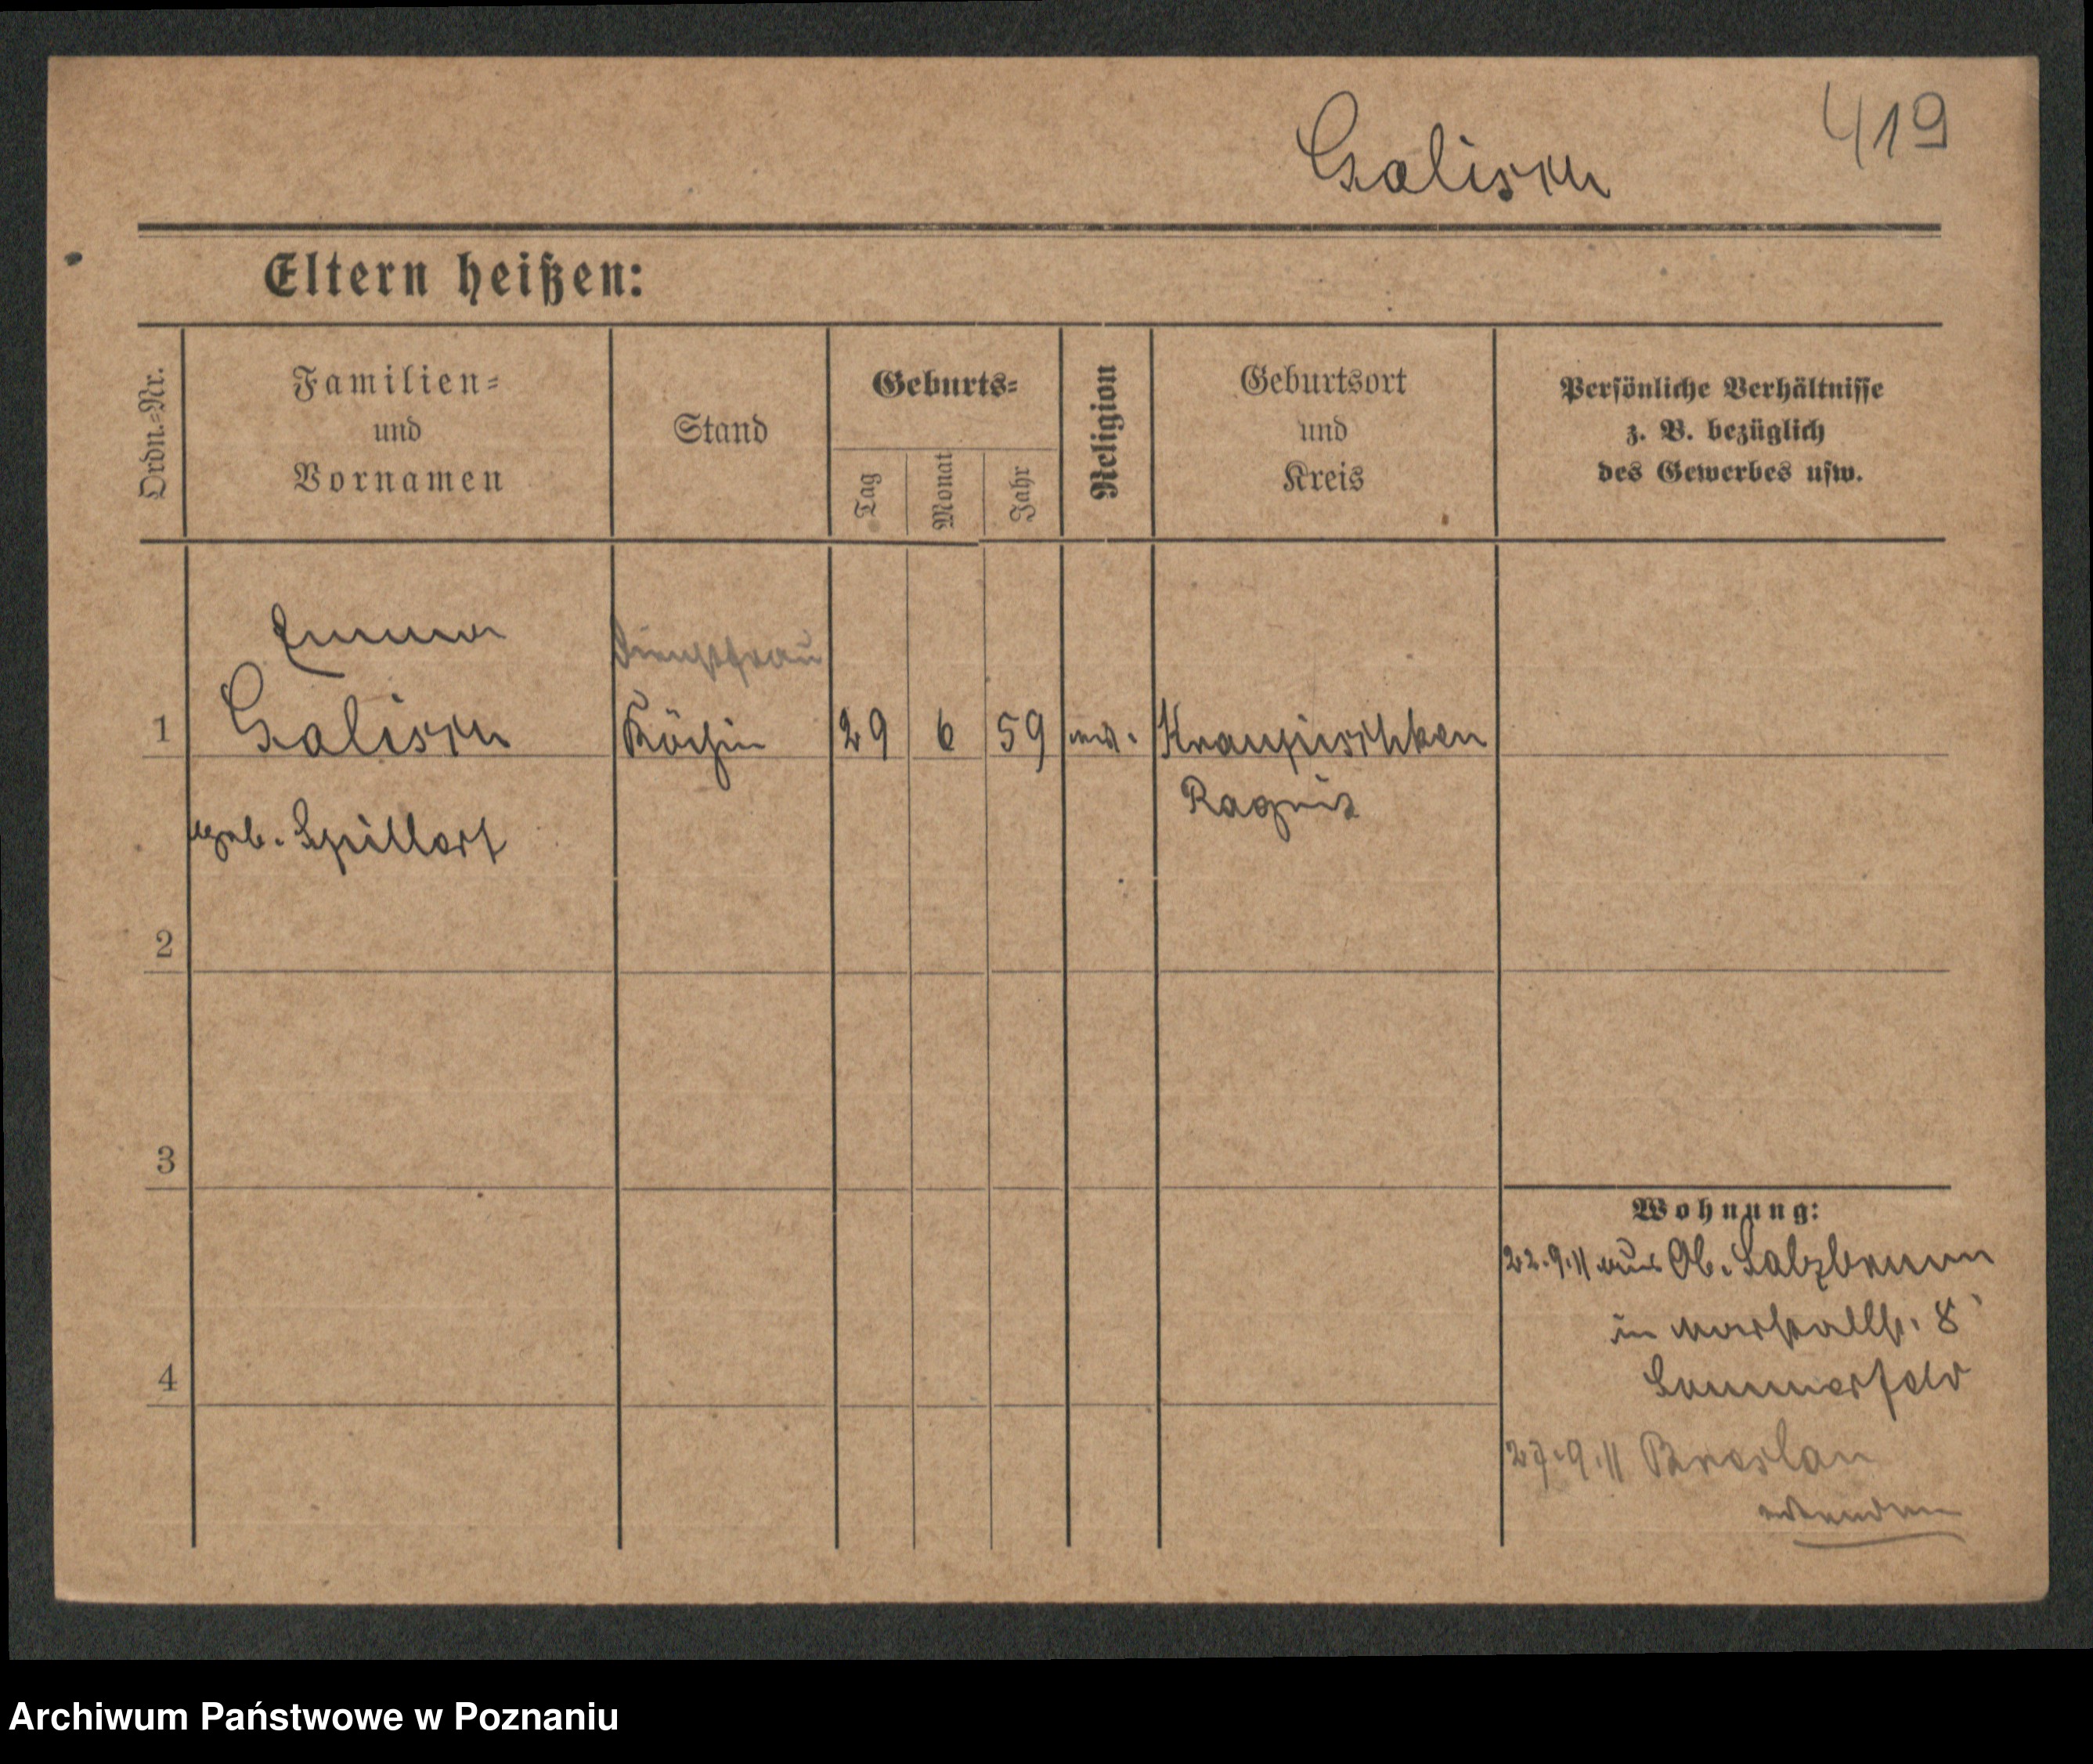 419
Galisch
Eltern heißen:
Ordn.=Nr.
Familien=
und
Vornamen
Stand
Geburts=
Tag
Monat
Jahr
Religion
Geburtsort
und
Kreis
Persönliche Verhältnisse
z. B. bezüglich
des Gewerbes usw.
Emma
Dienstfrau
1 Galisch Köchin 29 6 59
Ragnit
geb. Spillert
2
3
4
Wohnung:
22.9.11 aus Ob. Salzbrunn
in 8
Sommerfeld
27.9.11 Breslau
Archiwum Państwowe w Poznaniu